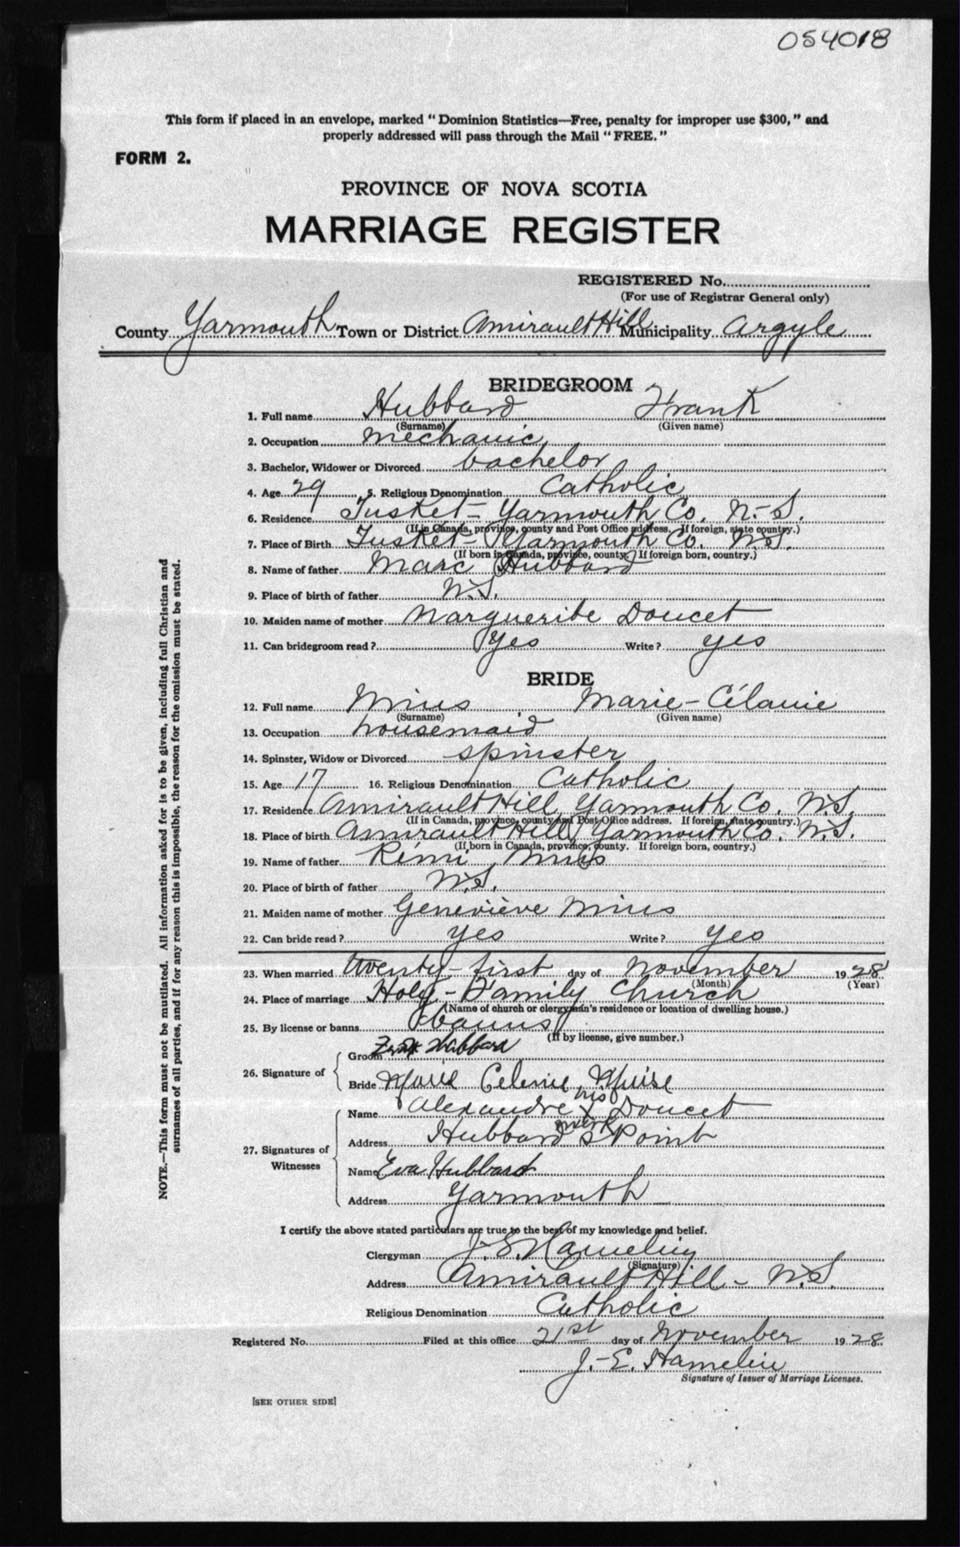 054018
This form if placed in an envelope, marked "Dominion Statistics—Free, penalty for improper use $300," and
properly addressed will pass through the Mail "FREE."
FORM 2.
PROVINCE OF NOVA SCOTIA
MARRIAGE REGISTER
REGISTERED No.
(For use of Registrar General only)
County Yarmouth Town or District Amirault Hill Municipality Argyle
BRIDEGROOM
1. Full name Hubbard Frank
(Surname) (Given name)
2. Occupation mechanic
3. Bachelor, Widower or Divorced bachelor
4. Age 29 5. Religious Denomination Catholic
6. Residence Tusket- Yarmouth Co. N.-S.
(If in Canada, province, county and Post Office address. If foreign, state country.)
7. Place of Birth Tusket- Yarmouth Co. N.S.
(If born in Canada, province, county. If foreign born, country.)
8. Name of father Marc Hubbard
9. Place of birth of father N.S.
10. Maiden name of mother Marguerite Doucet
11. Can bridegroom read? Yes Write? yes
BRIDE
12. Full name Mius Marie-Célanie
(Surname) (Given name)
13. Occupation housemaid
14. Spinster, Widow or Divorced spinster
15. Age 17 16. Religious Denomination Catholic
17. Residence Amirault Hill, Yarmouth Co. N.S.
(If in Canada, province, county and Post Office address. If foreign, state country.)
18. Place of birth Amirault Hill, Yarmouth Co. N.S.
(If born in Canada, province, county. If foreign born, country.)
19. Name of father Rémi Mius
20. Place of birth of father N.S.
21. Maiden name of mother Geneviève Mius
22. Can bride read? yes Write? yes
23. When married twenty-first day of November 1928
(Month) (Year)
24. Place of marriage Holy-Family Church
(Name of church or clergyman's residence or location of dwelling house.)
25. By license or banns banns
(If by license, give number.)
26. Signature of
Groom Frank Hubbard
Bride Marie Celenie Muise
27. Signatures of Witnesses
his
Name Alexandre X Doucet
mark
Address Hubbard's Point
Name Eva Hubbard
Address Yarmouth
I certify the above stated particulars are true to the best of my knowledge and belief.
Clergyman J.-E. Hamelin
(Signature)
Address Amirault Hill - N.S.
Religious Denomination Catholic
Registered No. Filed at this office 21st day of November 1928
J.-E. Hamelin
Signature of Issuer of Marriage Licenses.
[SEE OTHER SIDE]
NOTE.—This form must not be mutilated. All information asked for is to be given, including full Christian and
surnames of all parties, and if for any reason this is impossible, the reason for the omission must be stated.